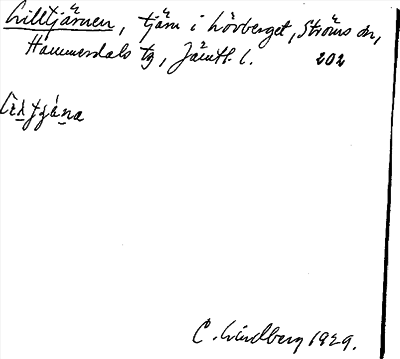 Lilltjärnen, tjärn i Lövberget, Ströms sn,
Hammerdals tg, Jämtl. l. 202
C. Lindberg 1929.